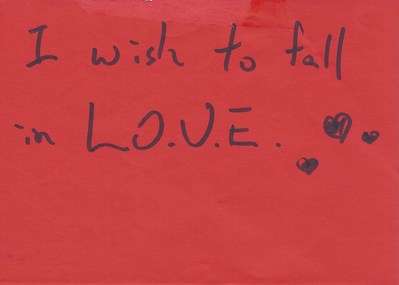 I wish to fall
in L.O.V.E.